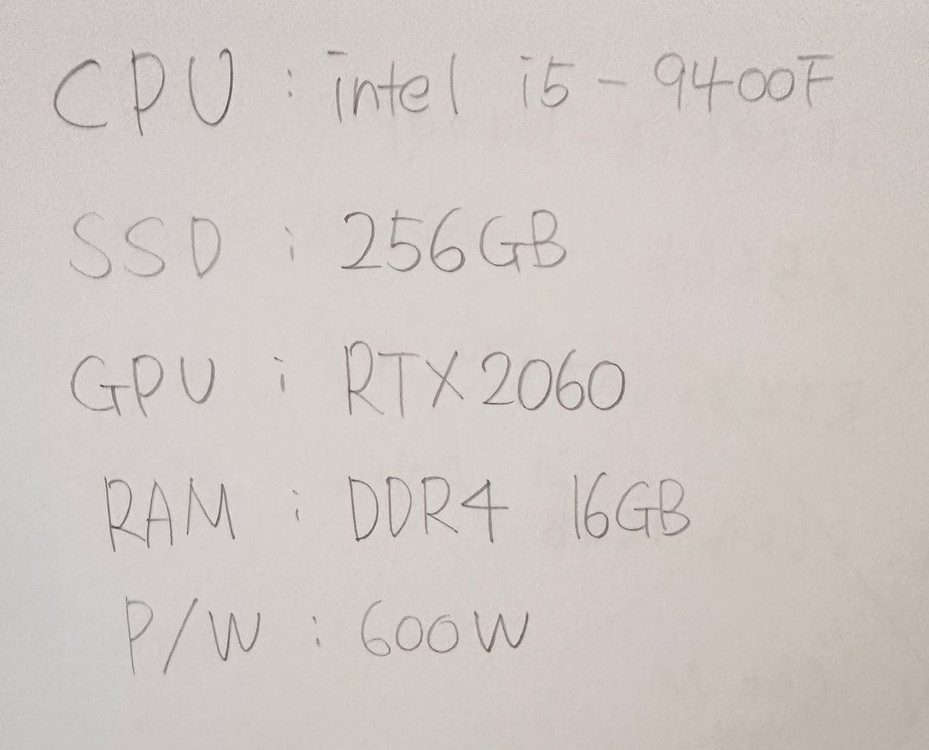 CPU : intel i5 - 9400F
SSD : 256GB
GPU : RTX2060
RAM : DDR4 16GB
P/W : 600W